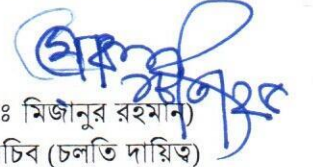 ঃ মিজানুর রহমান)
চিব (চলতি দায়িত্ব)